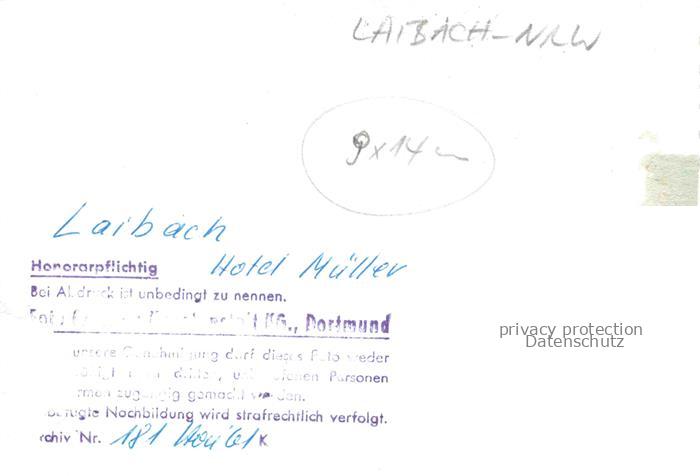 LAIBACH-NRW
9x14
Laibach
Honorarpflichtig Hotel Müller
Bei Abdruck ist unbedingt zu nennen.
KG., Dortmund
unsere Genehmigung darf dieses Foto weder
Personen
zugängig gemacht werden.
Nachbildung wird strafrechtlich verfolgt.
rchiv Nr. 181 K
privacy protection
Datenschutz